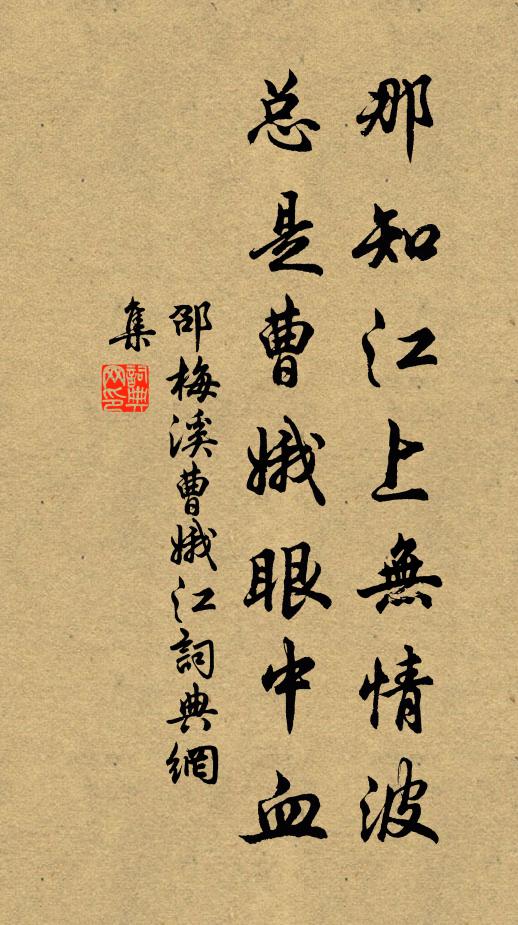 那知江上無情波
总是曹娥眼中血
邵梅溪曹娥江詞典網
集
詞典网印